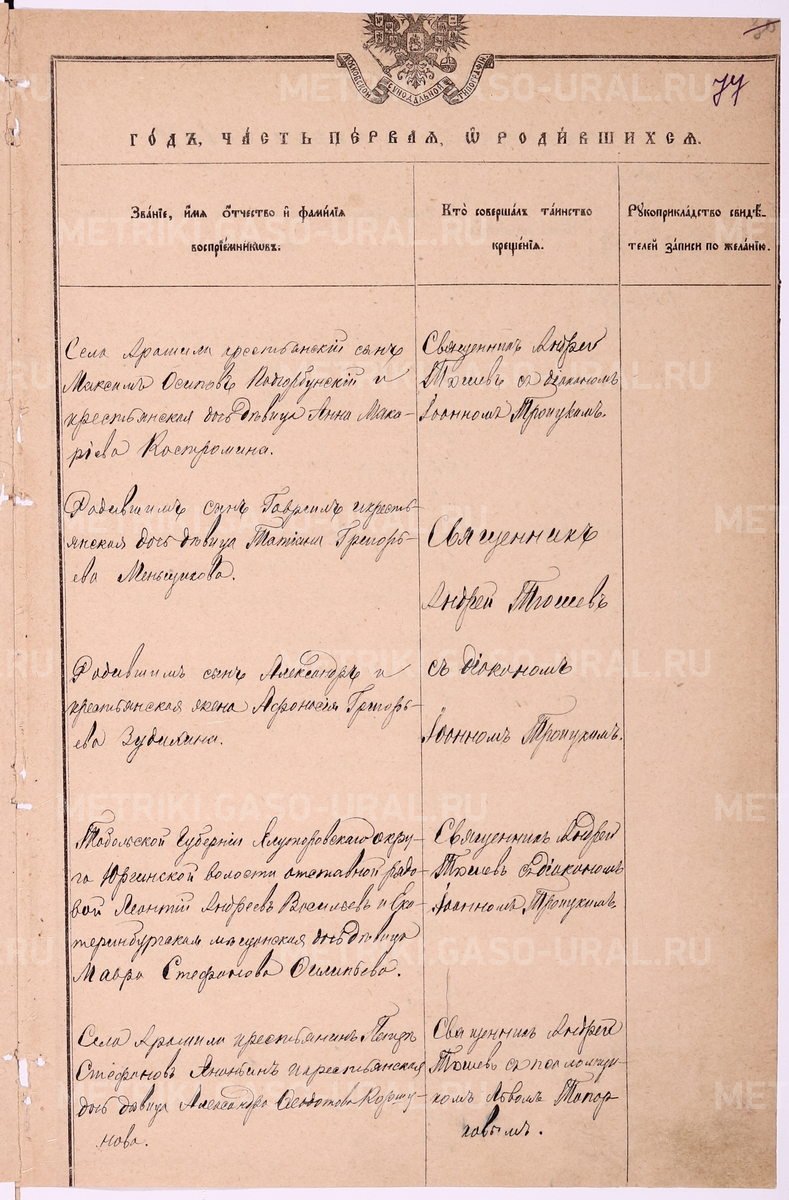 38
77
МОСКОВСКОЙ СѴНОДАЛЬНОЙ ТИПОГРАФІИ
ГО́ДЪ, ЧА́СТЬ ПЕ́РВАЯ, Ѽ РОДИ́ВШИХСЯ.
Зва́нїе, и́мя ѻ́тчество и҆ фами́лїя
воспрїе́мникѡвъ.
Кто̀ соверша́лъ та́инство
креще́нїя.
Рꙋкоприкла́дство свидѣ́-
телей за́писи по жела́нїю.
Села Арамила крестьянскій сынъ
Максимъ Осиповъ Подгорбунскій и
крестьянская дочь дѣвица Анна Мака-
ріева Костромина.
Священникъ Андрей
Тюшевъ съ діакономъ
Іоанномъ Тропукимъ.
Родившимъ сынъ Гавріилъ и кресть-
янская дочь дѣвица Татіана Григорь-
ева Меньщикова.
Священникъ
Андрей Тюшевъ
съ діакономъ
Іоанномъ Тропукимъ.
Родившимъ сынъ Александръ и
крестьянская жена Афонасія Григорь-
ева Зудихина.
Тобольской Губерніи Ялуторовскаго окру-
га Юргинской волости отставной рядо-
вой Леонтій Андреевъ Васильевъ и Ека-
теринбургская мѣщанская дочь дѣвица
Мавра Стефанова Осипьева.
Священникъ Андрей
Тюшевъ съ діакономъ
Іоанномъ Тропукимъ
Села Арамила крестьянинъ Петръ
Стефановъ Ананьинъ и крестьянская
дочь дѣвица Александра Ѳедотова Коршу-
нова.
Священникъ Андрей
Тюшевъ съ псаломщи-
комъ Львомъ Топор-
ковымъ.
METRIKI.GASO-URAL.RU